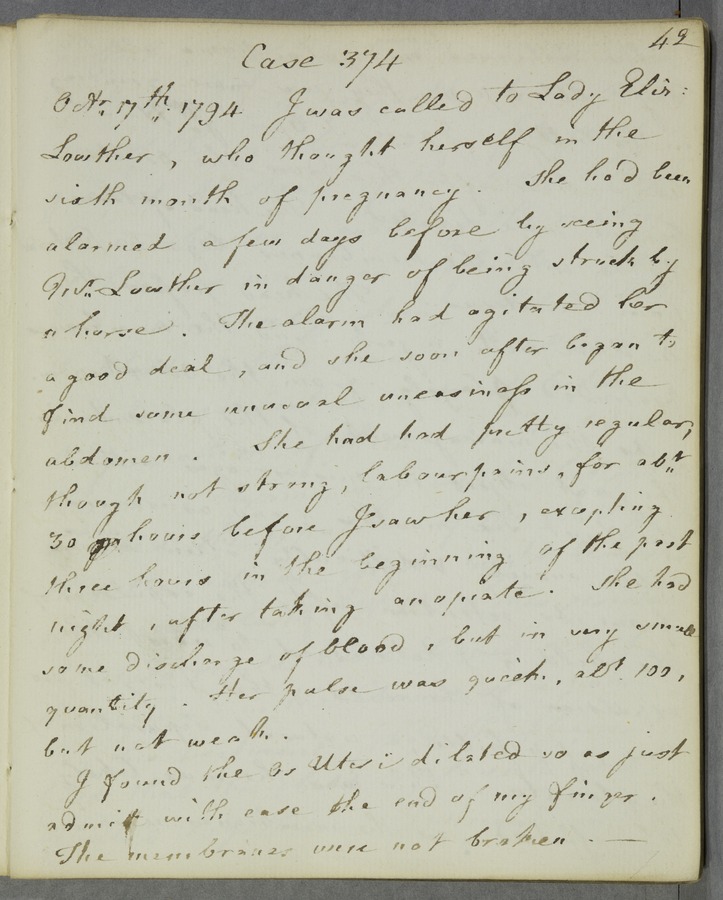 42
Case 374
Octr. 17th. 1794 I was called to Lady Eliz:
Lowther, who thought herself in the
sixth month of pregnancy. She had been
alarmed a few days before by seeing
Lowther in danger of being struck by
a horse. The alarm had agitated her
a good deal, and she soon after began to
find some unusual uneasiness in the
abdomen. She had had pretty regular,
though not strong, labour pains, for abt.
30 hours before I saw her, excepting
three hours in the beginning of the past
night, after taking an opiate. She had
some discharge of blood, but in very small
quantity. Her pulse was quick, abt. 100,
but not weak.
I found the Os Uteri dilated so as just
admit with ease the end of my finger.
The membranes were not broken. —